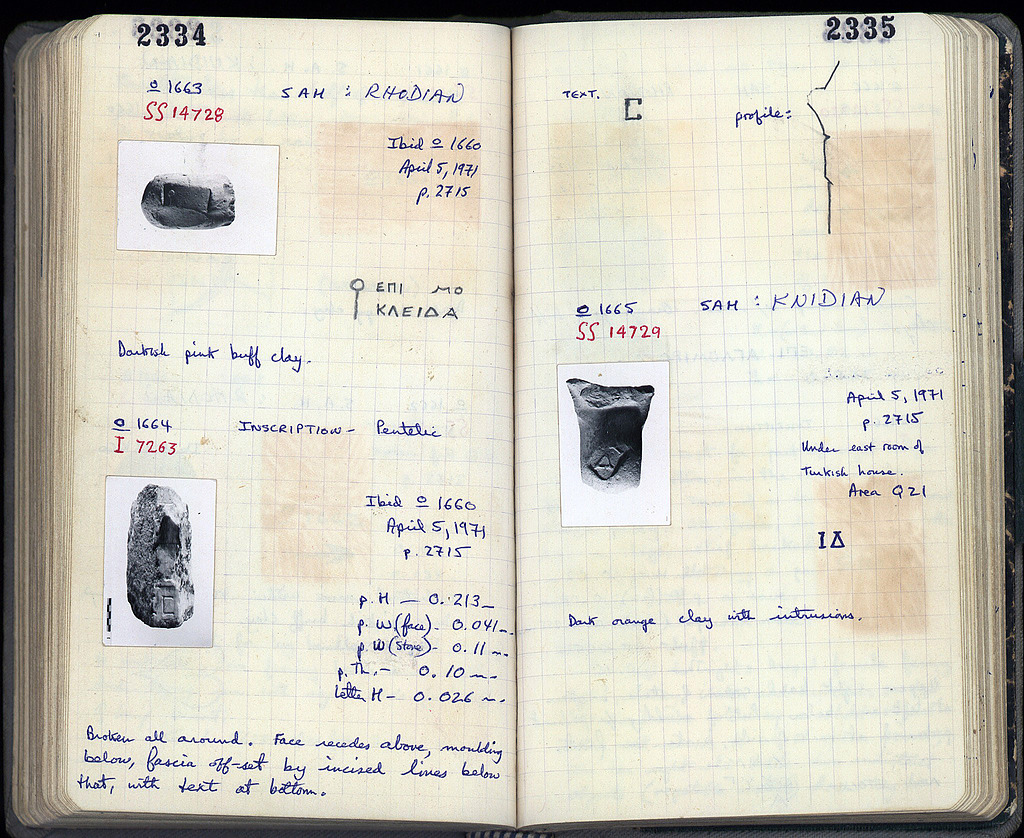 2334
o 1663 SAH : RHODIAN
SS 14728
Ibid o 1660
April 5, 1971
p. 2715
ΕΠΙ ΜΟ
ΚΛΕΙΔΑ
Darkish pink buff clay.
o 1664 INSCRIPTION - Pentelic
I 7263
Ibid o 1660
April 5, 1971
p. 2715
p. H — 0.213 m.
p. W (face) - 0.041 m.
p. W (stone) - 0.11 m.
p. Th. - 0.10 m.
Letter H - 0.026 m.
Broken all around. Face recedes above, moulding
below, fascia off-set by incised lines below
that, with text at bottom.
2335
TEXT.
profile:
o 1665 SAH : KNIDIAN
SS 14729
April 5, 1971
p. 2715
Under east room of
Turkish house.
Area Q21
ΙΔ
Dark orange clay with intrusions.